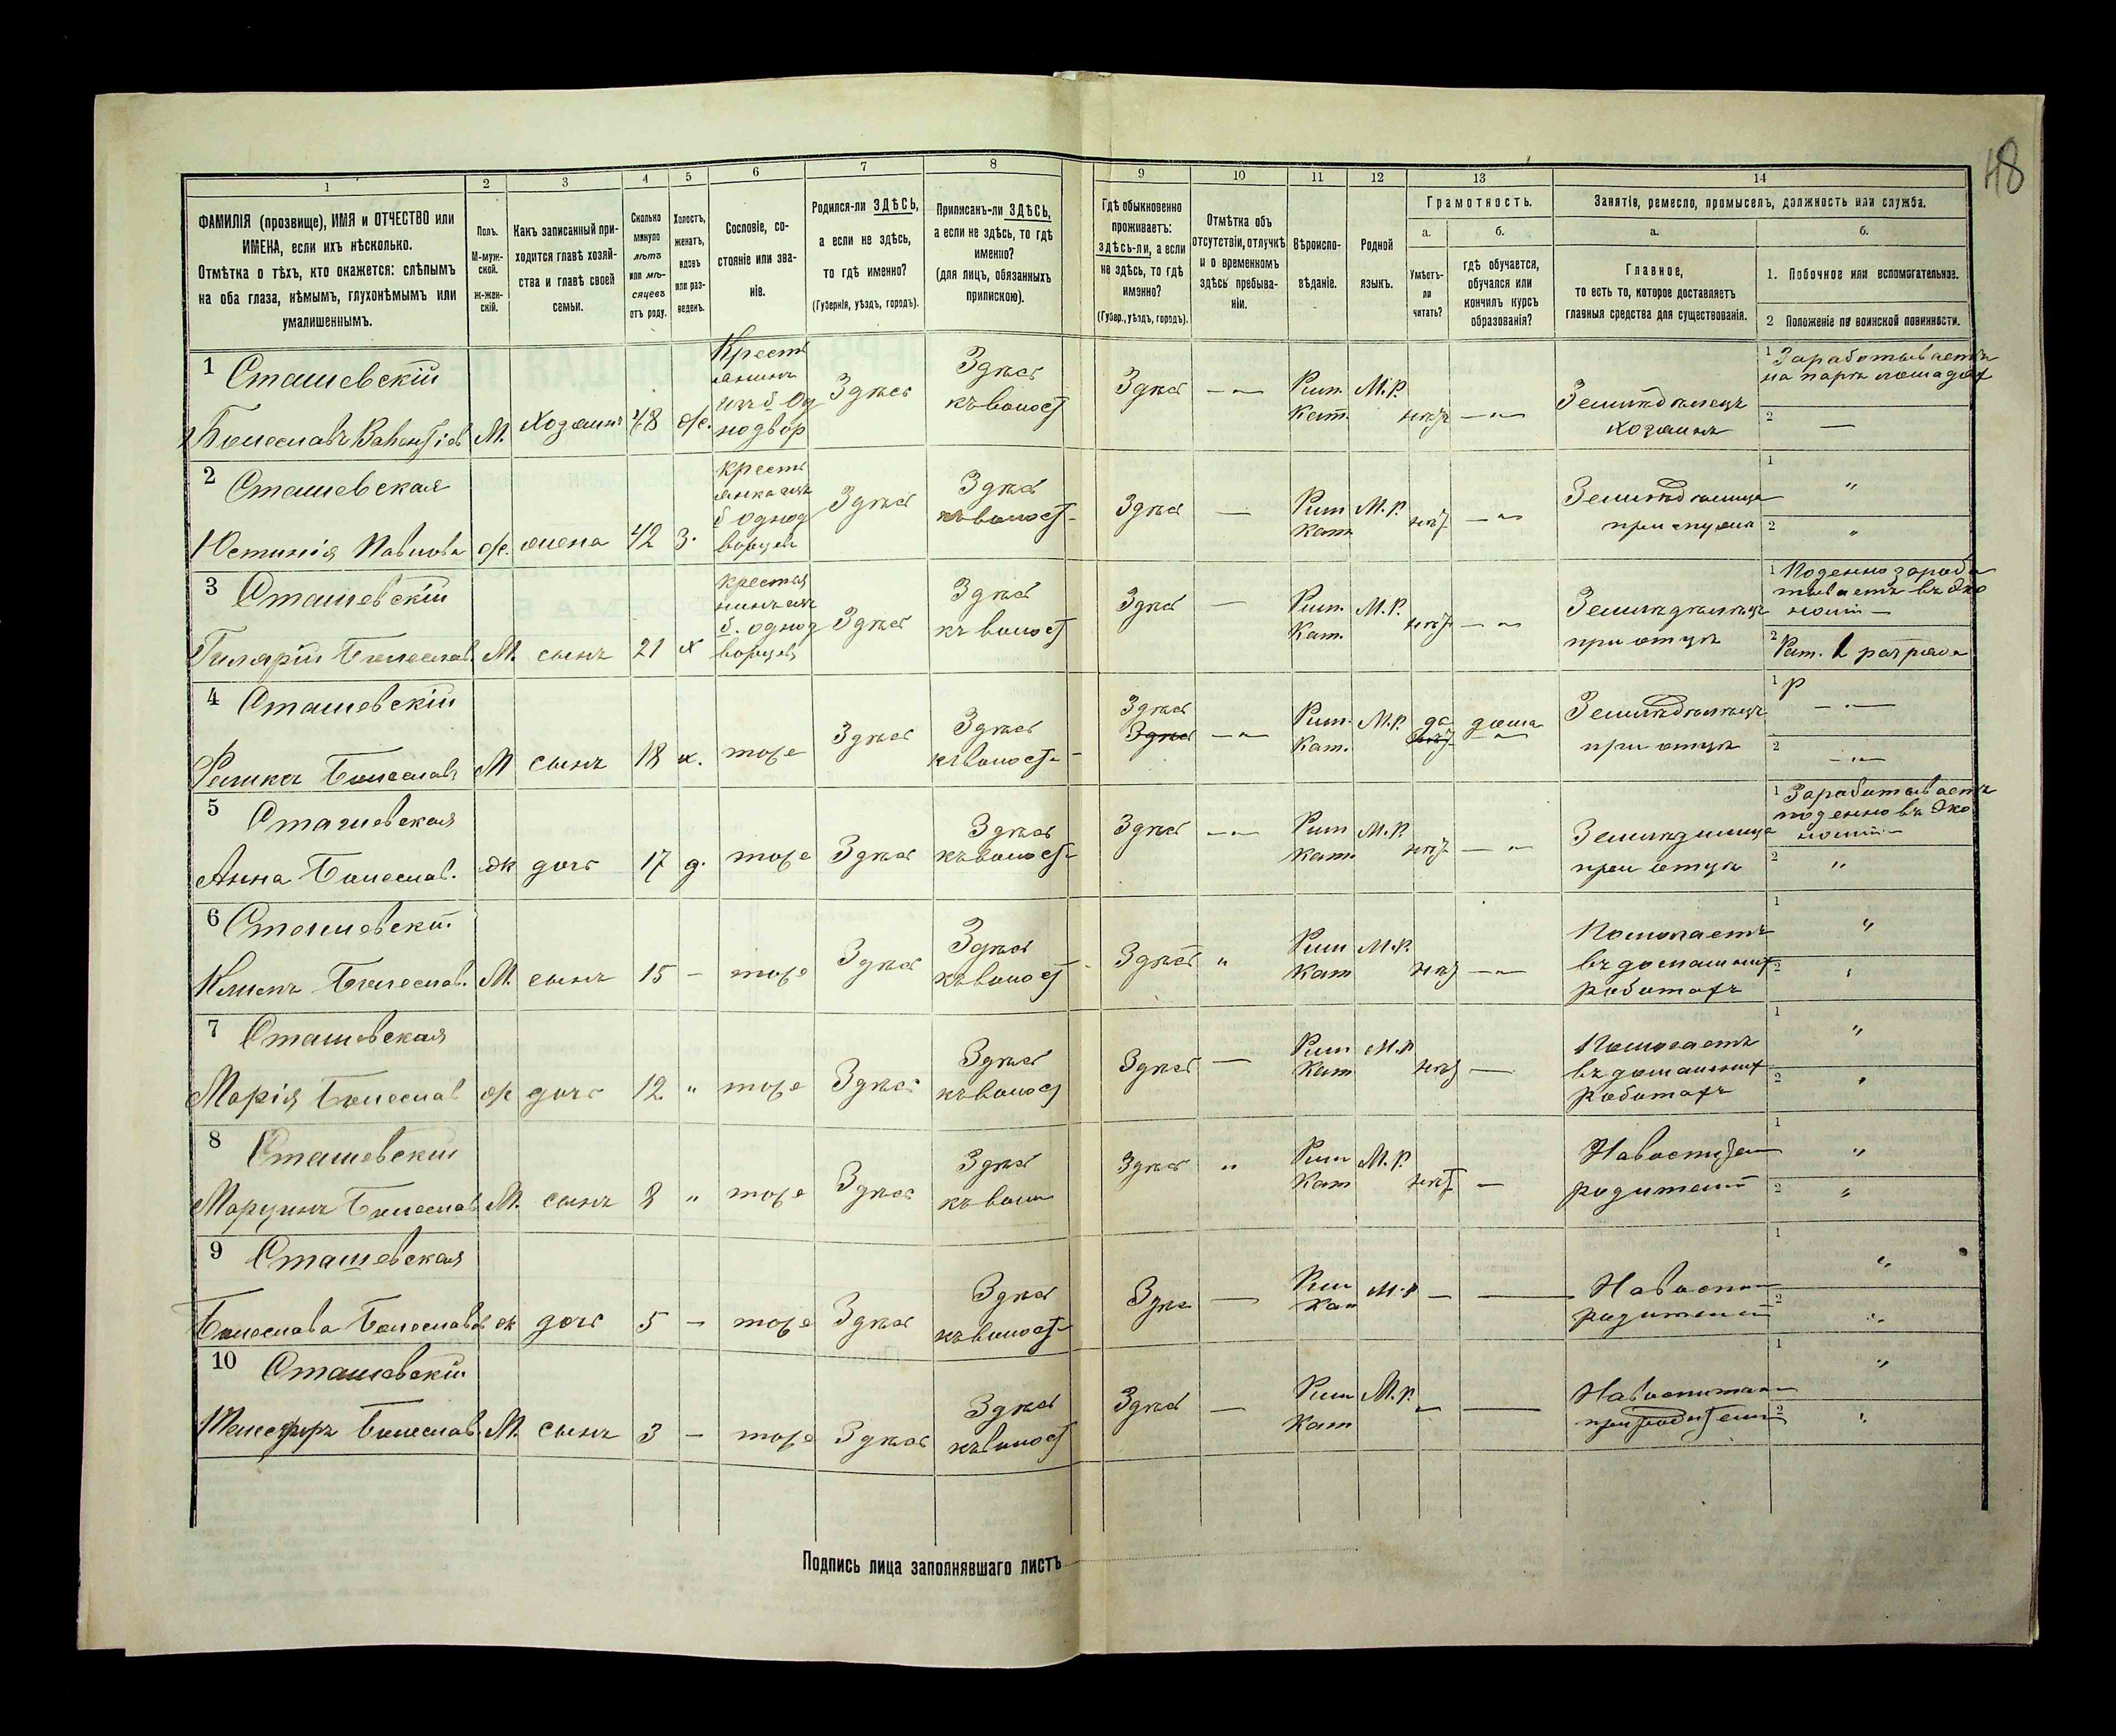 48
1 2 3 4 5 6 7 8 9 10 11 12 13 14
ФАМИЛІЯ (прозвище), ИМЯ и ОТЧЕСТВО или
ИМЕНА, если ихъ нѣсколько.
Отмѣтка о тѣхъ, кто окажется: слѣпымъ
на оба глаза, нѣмымъ, глухонѣмымъ или
умалишеннымъ.
Полъ.
М-муж-
ской.
Ж-жен-
скій.
Какъ записанный при-
ходится главѣ хозяй-
ства и главѣ своей
семьи.
Сколько
минуло
лѣтъ
или мѣ-
сяцевъ
отъ роду.
Холостъ,
женатъ,
вдовъ
или раз-
веденъ.
Сословіе, со-
стояніе или зва-
ніе.
Родился-ли ЗДѢСЬ,
а если не здѣсь,
то гдѣ именно?
(Губернія, уѣздъ, городъ).
Приписанъ-ли ЗДѢСЬ,
а если не здѣсь, то гдѣ
именно?
(для лицъ, обязанныхъ
припискою).
Гдѣ обыкновенно
проживаетъ:
здѣсь-ли, а если
не здѣсь, то гдѣ
именно?
(Губер., уѣздъ, городъ).
Отмѣтка объ
отсутствіи, отлучкѣ
и о временномъ
здѣсь пребыва-
ніи.
Вѣроиспо-
вѣданіе.
Родной
языкъ.
Грамотность.
а.
Умѣетъ-
ли
читать?
б.
гдѣ обучается,
обучался или
кончилъ курсъ
образованія?
Занятіе, ремесло, промыселъ, должность или служба.
а.
Главное,
то есть то, которое доставляетъ
главныя средства для существованія.
б.
1. Побочное или вспомогательное.
2 Положеніе по воинской повинности.
1 Сташевскій
М. Хозяинъ 48 ж.
Здѣсь
Здѣсь
къ волост
Здѣсь
Рим.
Кат.
М.Р.
нѣт
Земледѣлецъ
хозяинъ
1 Зарабатываетъ
на паръ лошадях
2 —
2 Сташевская
Юстинія Павлова ж. жена 42 З.
Здѣсь
Здѣсь
къ волост
Здѣсь —
Рим
Кат
М.Р.
нѣт
Земледѣлица
при мужѣ
1 "
2 "
3 Сташевскій
Гиларій Болеслав. М. сынъ 21 х
Здѣсь
Здѣсь
къ волост
Здѣсь —
Рим.
Кат.
М.Р.
нѣт
Земледѣлецъ
при отцѣ
1 Поденно зараба
тываетъ въ Эко
номіи —
2 Рат. 1 разряда
4 Сташевскій
Феликсъ Болеслав М сынъ 18 х. тоже
Здѣсь
Здѣсь
къ волост
Здѣсь
Здѣсь
Рим.
Кат.
М.Р. да дома
Земледѣлецъ
при отцѣ
1
2
5 Сташевская
Анна Болеслав. Ж дочь 17 д. тоже
Здѣсь
Здѣсь
къ волост
Здѣсь
Рим
Кат.
М.Р.
нѣт
Земледѣлица
при отцѣ
1 Зарабатываетъ
поденно въ Эко
номіи —
2 "
6 Сташевскій
Климъ Болеслав. М. сынъ 15 — тоже
Здѣсь
Здѣсь
къ волост
Здѣсь "
Рим
Кат
М.Р.
нѣт
Помогаетъ
въ домашних
работах
1 "
2
7 Сташевская
Марія Болеслав ж дочь 12 " тоже
Здѣсь
Здѣсь
къ волос
Здѣсь —
Рим
Кат
М.Р
нѣт —
Помогаетъ
въ домашних
работахъ
1 "
2 "
8 Сташевский
Марцинъ Болеслав М. сынъ 8 " тоже
Здѣсь
Здѣсь
къ воло
Здѣсь "
Рим
Кат
М.Р.
нѣт —
родителей
1 "
2 "
9 Сташевская
Болеслава Болеславов ж дочь 5 — тоже
Здѣсь
Здѣсь
къ волост
Здѣс —
Рим
Кат
М.Р —
родителей
1 "
2 "
10 Сташевскій
Болеслав. М. сынъ 3 — тоже
Здѣсь
Здѣсь
къ волост
Здѣсь —
Рим
Кат
М.Р.
при родител
1 "
2 "
Подпись лица заполнявшаго листъ